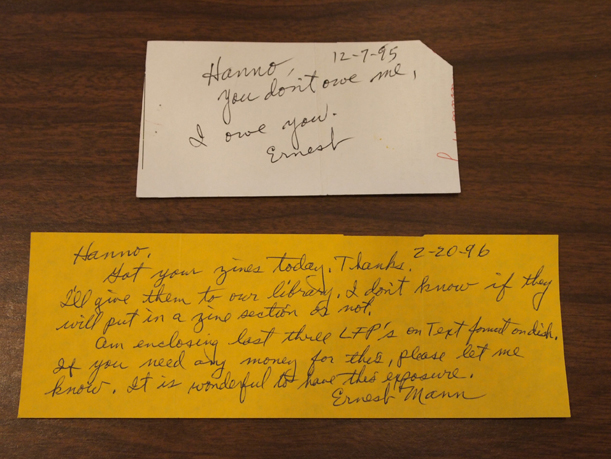 12-7-95
Hanno,
You don't owe me,
I owe you.
Ernest
Hanno, 2-20-96
Got your zines today. Thanks.
I'll give them to our library. I don't know if they
will put in a zine section or not.
Am enclosing last three LFP's on Text format on disk.
If you need any money for this, please let me
know. It is wonderful to have this exposure.
Ernest Mann